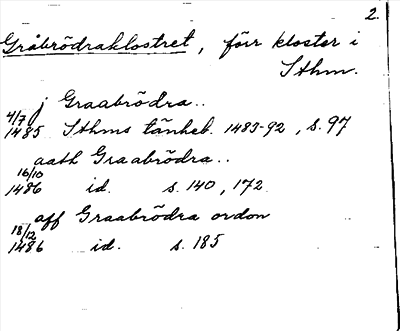 2.
Gråbrödraklostret, förr kloster i
Sthm.
j Graabrödra..
4/7 1485 Sthms tänkeb. 1483-92, s. 97
aath Graabrödra..
16/10 1486 id. s. 140, 172.
aff Graabrödra ordon
18/12 1486 id. s. 185